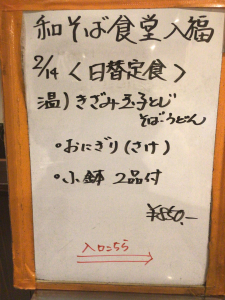 和そば食堂入福
2/14 〈日替定食〉
温)きざみ玉子とじ
そば・うどん
・おにぎり(さけ)
・小鉢 2品付
¥850.-
入口こちら